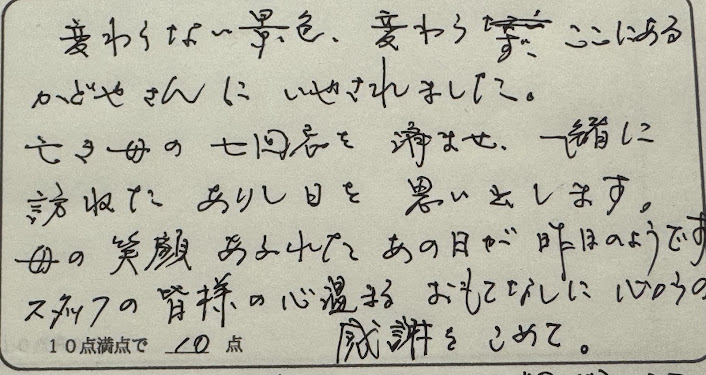 変わらない景色、変わらず、ここにある
かどやさんに いやされました。
亡き母の 七回忌を 済ませ、一緒に
訪れた ありし日を 思い出します。
母の 笑顔 あふれた あの日が 昨日のようです
スタッフの 皆様の 心温まる おもてなしに 心からの
感謝を こめて。
10点満点で 10 点